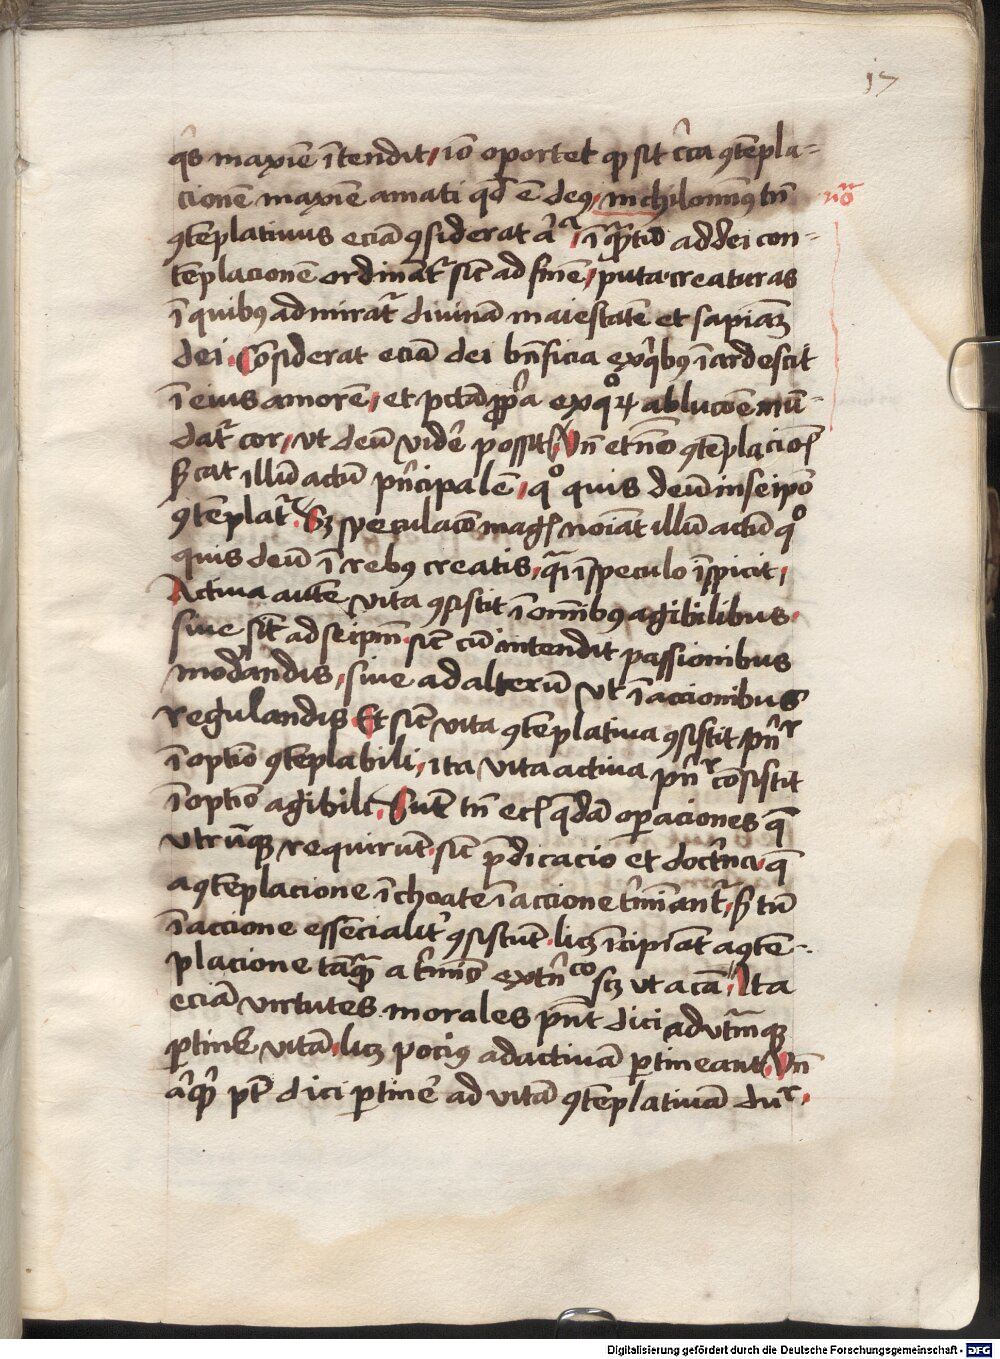 17
q̉s maxīe ītendit, iō oportet ꝙ sit c̉ca ꝯtēpla=
cionē maxīe amati qd̄ ē deꝰ, nichilominꝰ tn̄
nōᵃ
ꝯtēplatiuus eciā ꝯsiderat
ad dei con=
tēplacionē ordinant᷑ sic̄ ad finē, puta creaturas
ī quibꝰ admirat᷑ diuinā maiestatē et sapiaꝫ
dei. Cōsiderat eciā dei bn̄ficia ex q̉bꝰ īardescit
ī eius amorē, et pctā ꝓp̉a ex qͦꝝ ablucōe mū=
dat᷑ cor, vt deū vidē possit. Vn̄ et nōīo ꝯtēplacioīs
illū actū pn̉cipalē, qͦ quis deū in seip̄o
ꝯtēplat᷑. Sꝫ speculacō magꝭ noīat illū actū qͦ
quis deū ī rebꝰ creatis, q̄ī ī speculo īspicit,
Actiua autē vita ꝯsistit ī omībꝰ agibilibus.
siue sīt ad seip̄m sic̄ cū intendit passionibus
mod̉andis, siue ad alterū vt ī accionibus
regulandis. Et sic̄ vita ꝯtēplatiua ꝯsistit pn̉r
ī optīo ꝯtēplabili, ita vita actiua pn̉r cōsistit
ī optīo agibili. Sunt tn̄ q̄dā oꝑaciones q̄
vtrūqꝫ requirūt. sic̄ p̄dicacio et doct̉na. q̄
a ꝯtēplacione īchoate ī accione t̉mīant᷑, tn̄
ī accione essēcialit̉ ꝯsistūt. licꝫ īcipiāt a ꝯtē=
placione tāq̄ a t̉mīo ext̉ncͦ scꝫ vt a cā. Ita
eciā virtutes morales pn̄t dici ad vt̄mqꝫ
ꝑtinē vitā. licꝫ pociꝰ ad actiuā ꝑtineant. Vn̄
pt̄ dici ꝑtinē ad vitā ꝯtēplatiuā dur.
Digitalisierung gefördert durch die Deutsche Forschungsgemeinschaft - DFG